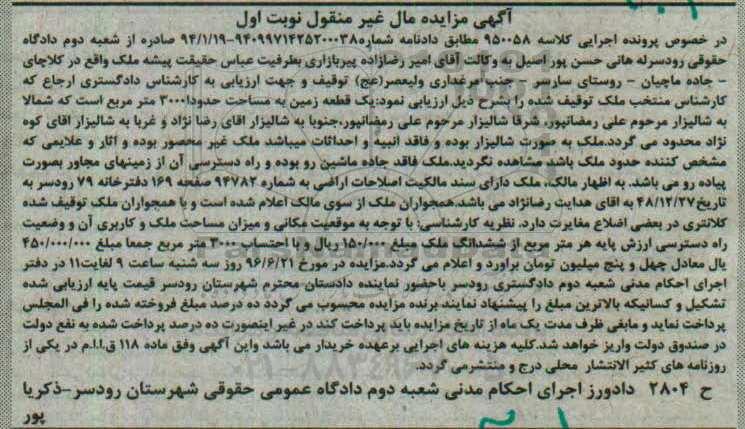 آگهی مزایده مال غیر منقول نوبت اول
در خصوص پرونده اجرایی کلاسه ۹۵۰۰۵۸ مطابق دادنامه شماره۹۴۰۹۹۷۱۴۲۵۲۰۰۰۳۸-۹۴/۱/۱۹ صادره از شعبه دوم دادگاه
حقوقی رودسرله هانی حسن پور اصیل به وکالت آقای امیر رضازاده پیربازاری بطرفیت عباس حقیقت پیشه ملک واقع در کلاچای
- جاده ماچیان - روستای سارسر - جنب مرغداری ولیعصر(عج) توقیف و جهت ارزیابی به کارشناس دادگستری ارجاع که
کارشناس منتخب ملک توقیف شده را بشرح ذیل ارزیابی نمود:یک قطعه زمین به مساحت حدودا۳۰۰۰ متر مربع است که شمالا
به شالیزار مرحوم علی رمضانپور، شرقا شالیزار مرحوم علی رمضانپور،جنوبا به شالیزار اقای رضا نژاد و غربا به شالیزار اقای کوه
نژاد محدود می گردد.ملک به صورت شالیزار بوده و فاقد انبیه و احداثات میباشد ملک غیر محصور بوده و آثار و علایمی که
مشخص کننده حدود ملک باشد مشاهده نگردید.ملک فاقد جاده ماشین رو بوده و راه دسترسی آن از زمینهای مجاور بصورت
پیاده رو می باشد. به اظهار مالک، ملک دارای سند مالکیت اصلاحات اراضی به شماره ۹۴۷۸۲ صفحه ۱۶۹ دفترخانه ۷۹ رودسر به
تاریخ۴۸/۱۲/۲۷ به اقای هدایت رضانژاد می باشد.همجواران ملک از سوی مالک اعلام شده است و با همجواران ملک توقیف شده
کلانتری در بعضی اضلاع مغایرت دارد. نظریه کارشناسی: با توجه به موقعیت مکانی و میزان مساحت ملک و کاربری آن و وضعیت
راه دسترسی ارزش پایه هر متر مربع از ششدانگ ملک مبلغ ۱۵۰/۰۰۰ ریال و با احتساب ۳۰۰۰ متر مربع جمعا مبلغ ۴۵۰/۰۰۰/۰۰۰
یال معادل چهل و پنج میلیون تومان براورد و اعلام می گردد.مزایده در مورخ ۹۶/۶/۲۱ روز سه شنبه ساعت ۹ لغایت۱۱ در دفتر
اجرای احکام مدنی شعبه دوم دادگستری رودسر باحضور نماینده دادستان محترم شهرستان رودسر قیمت پایه ارزیابی شده
تشکیل و کسانیکه بالاترین مبلغ را پیشنهاد نمایند برنده مزایده محسوب می گردد ده درصد مبلغ فروخته شده را فی المجلس
پرداخت نماید و مابقی ظرف مدت یک ماه از تاریخ مزایده باید پرداخت کند در غیر اینصورت ده درصد پرداخت شده به نفع دولت
در صندوق دولت واریز خواهد شد.کلیه هزینه های اجرایی برعهده خریدار می باشد واین آگهی وفق ماده ۱۱۸ ق.ا.ا.م در یکی از
روزنامه های کثیر الانتشار محلی درج و منتشرمی گردد.
ح ۲۸۰۴ دادورز اجرای احکام مدنی شعبه دوم دادگاه عمومی حقوقی شهرستان رودسر-ذکریا
پور